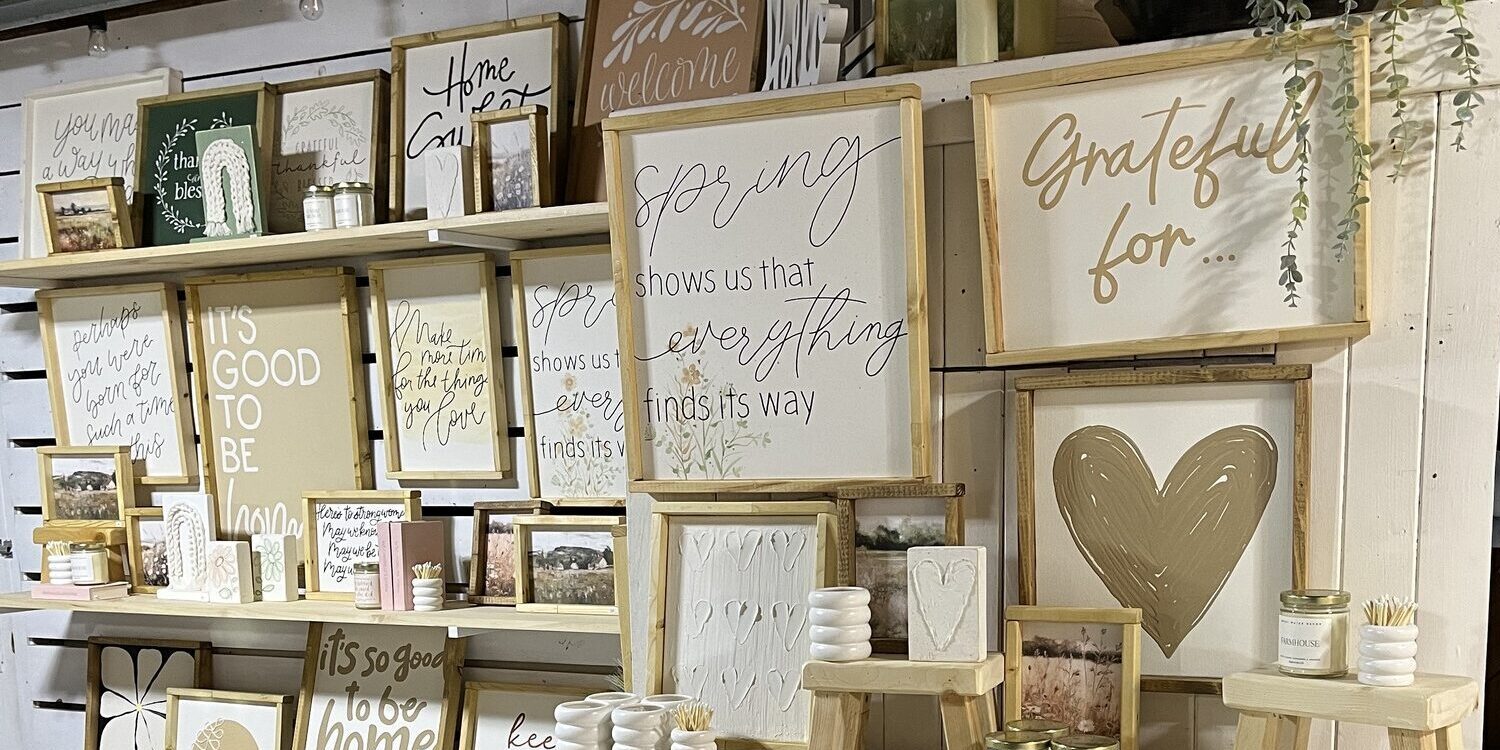 you may
a way wh
Home
Sweet
welcome
than
bles
GRATEFUL
thankful
spring
shows us that
everything
finds its way
Grateful
for ...
perhaps
you were
born for
such a time
this
IT'S
GOOD
TO
BE
home
Make
more time
for the things
you love
spri
shows us t
every
finds its w
Here's to strong women
May we know
May we be
May we
it's so good
to be
home
kee
FARMHOUSE